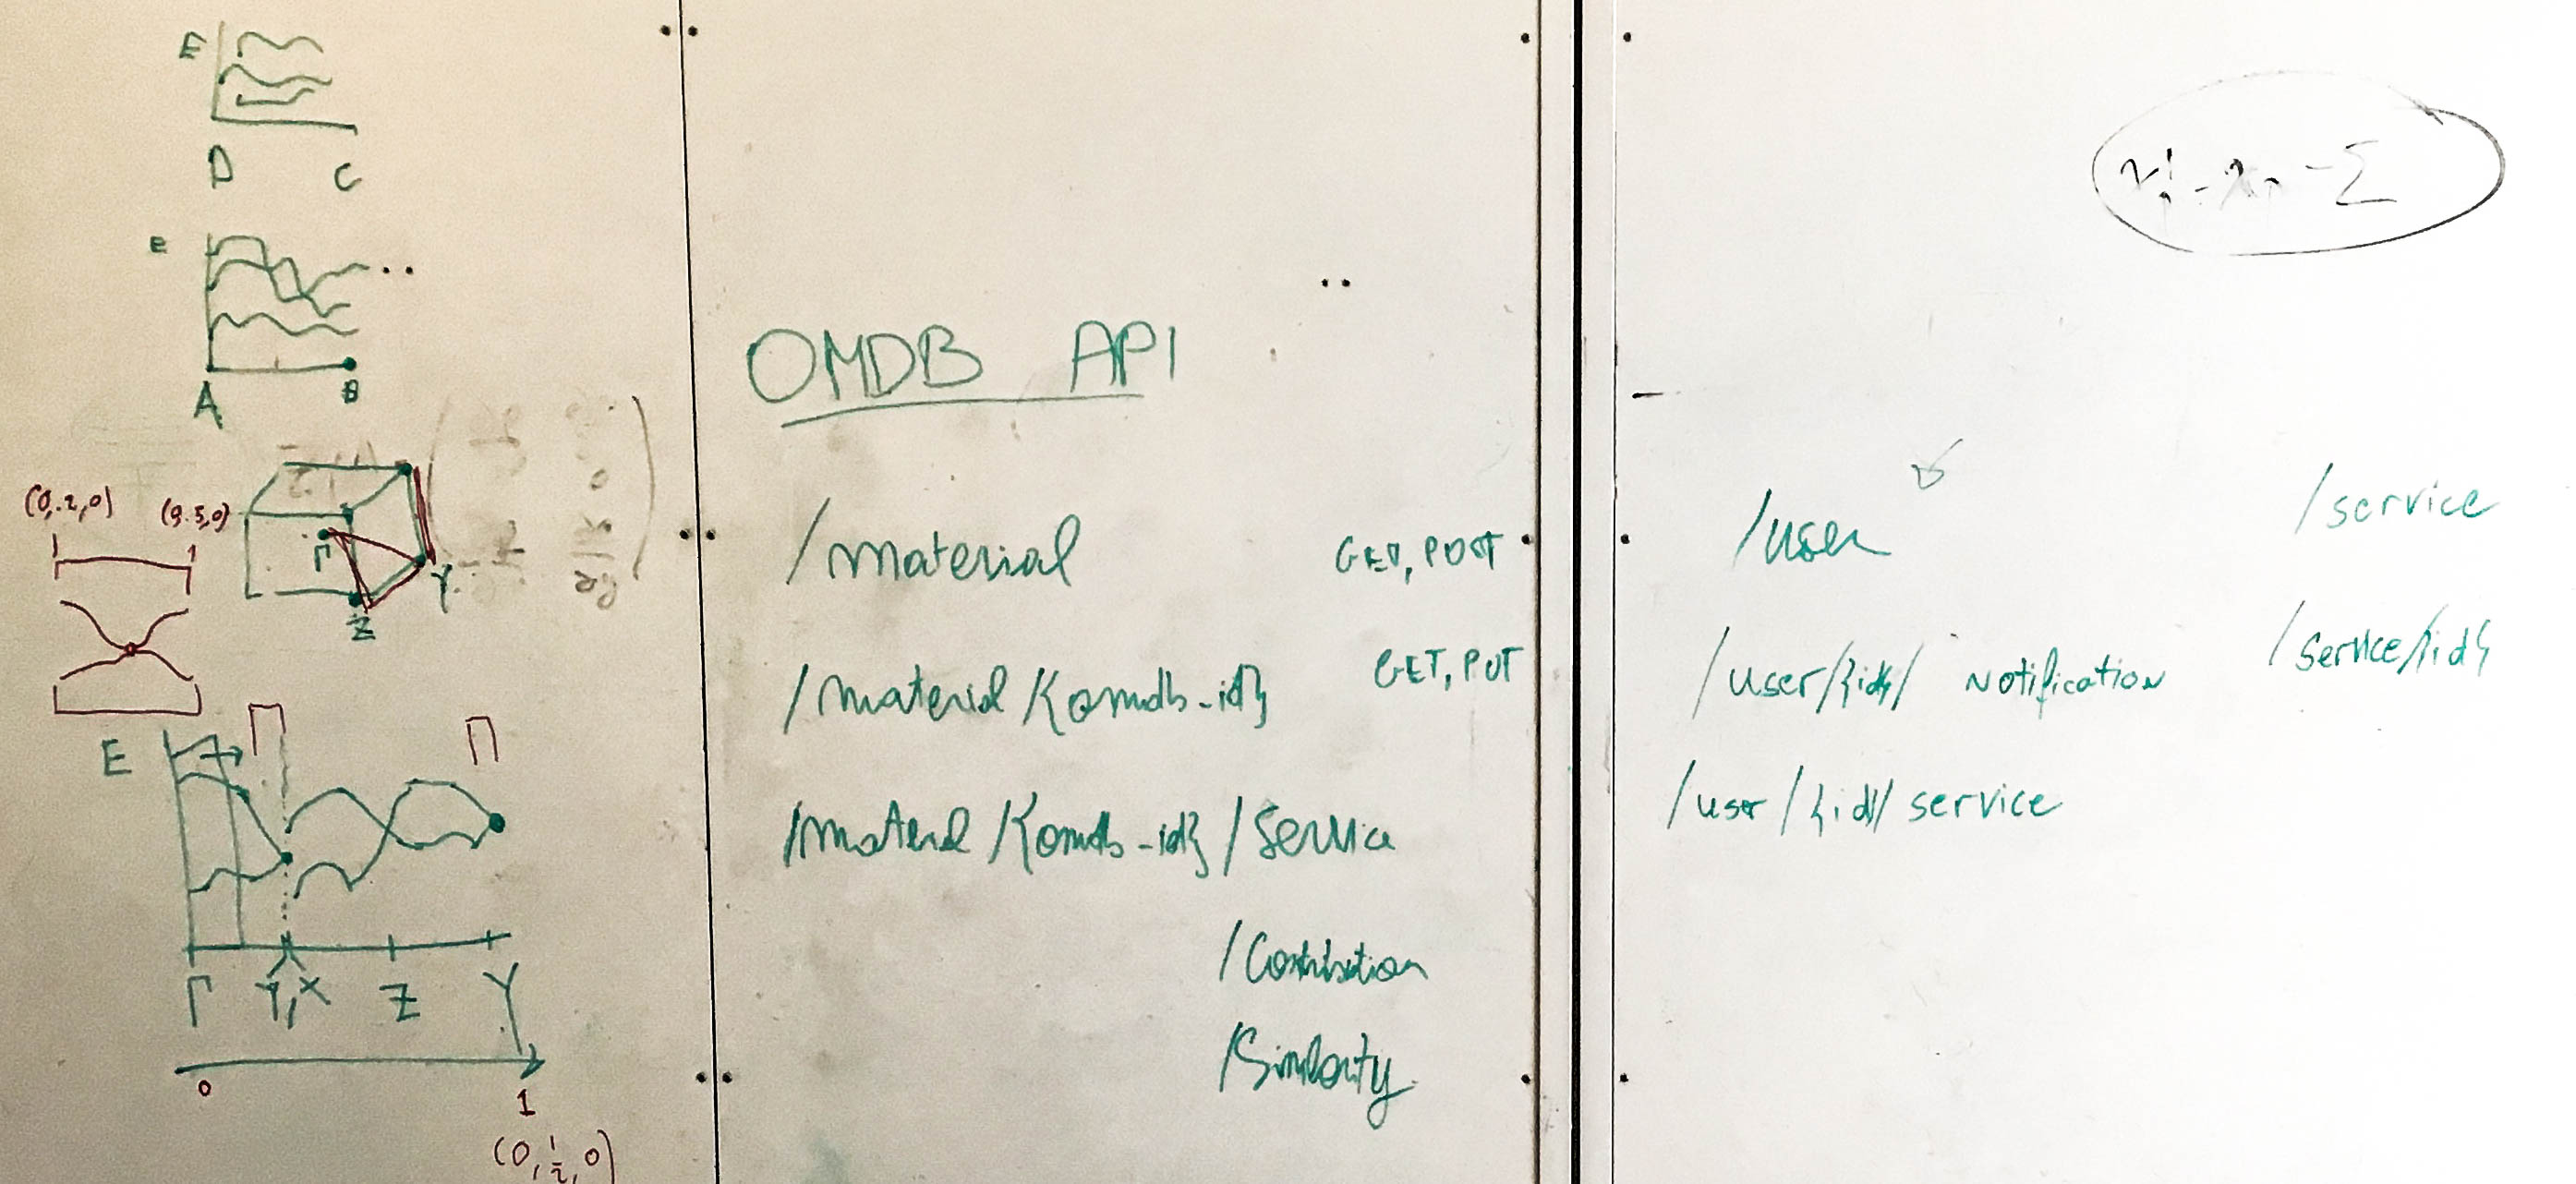 E
D C
E
A B
(0,.2,0) (0.5,0)
Γ
Y
Z
E
Γ Y,X Z Y
0 1
(0,½,0)
OMDB API
/material GET, POST
/material/{omdb-id} GET, PUT
/material/{omdb-id}/service
/Contribution
/Similarity
/user
/user/{id}/ Notification
/user/{id}/service
/service
/service/{id}